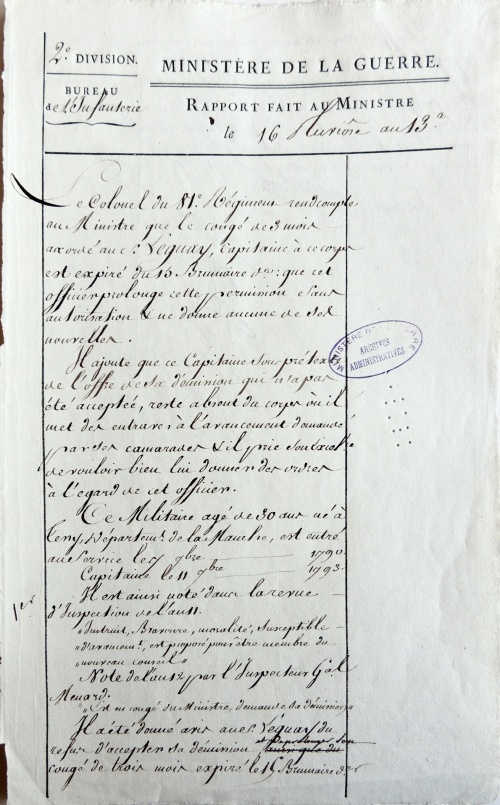 2.e DIVISION.
BUREAU
de L'Infanterie
MINISTÈRE DE LA GUERRE.
RAPPORT FAIT AU MINISTRE
le 16 Pluviôse an 13.e
Le Colonel du 81.e Régiment rend compte
au Ministre que le congé de 3 mois
accordé au S.r Léguay, Capitaine à ce corps
est expiré du 15 Brumaire d.er; que cet
officier prolonge cette permission sans
autorisation & ne donne aucune de ses
nouvelles.
Il ajoute que ce Capitaine sous prétexte
de l'offre de sa démission qui n'a pas
été acceptée, reste absent du corps où il
met des entraves à l'avancement demandé
par ses camarades & il prie son Excellce
de vouloir bien lui donner des ordres
à l'égard de cet officier.
Ce Militaire agé de 30 ans né à
Départemt. de la Manche, est entré
au Service le 7bre 1790.
Capitaine le 11 7bre 1793.
1er
Il est ainsi noté dans la revue
d'Inspection de l'an 11.
"Instruit, Bravoure, moralité, Susceptible
"d'avancemt., est proposé pour être membre du
"nouveau conseil"
Note de l'an 12 par l'Inspecteur Gal
Menard.
"Est en congé du Ministre, demande sa démission"
Il a été donné avis au S.r Léguay du
refus d'accepter sa démission
congé de trois mois expiré le 15 Brumaire d.er
MINISTÈRE DE LA GUERRE
ARCHIVES
ADMINISTRATIVES